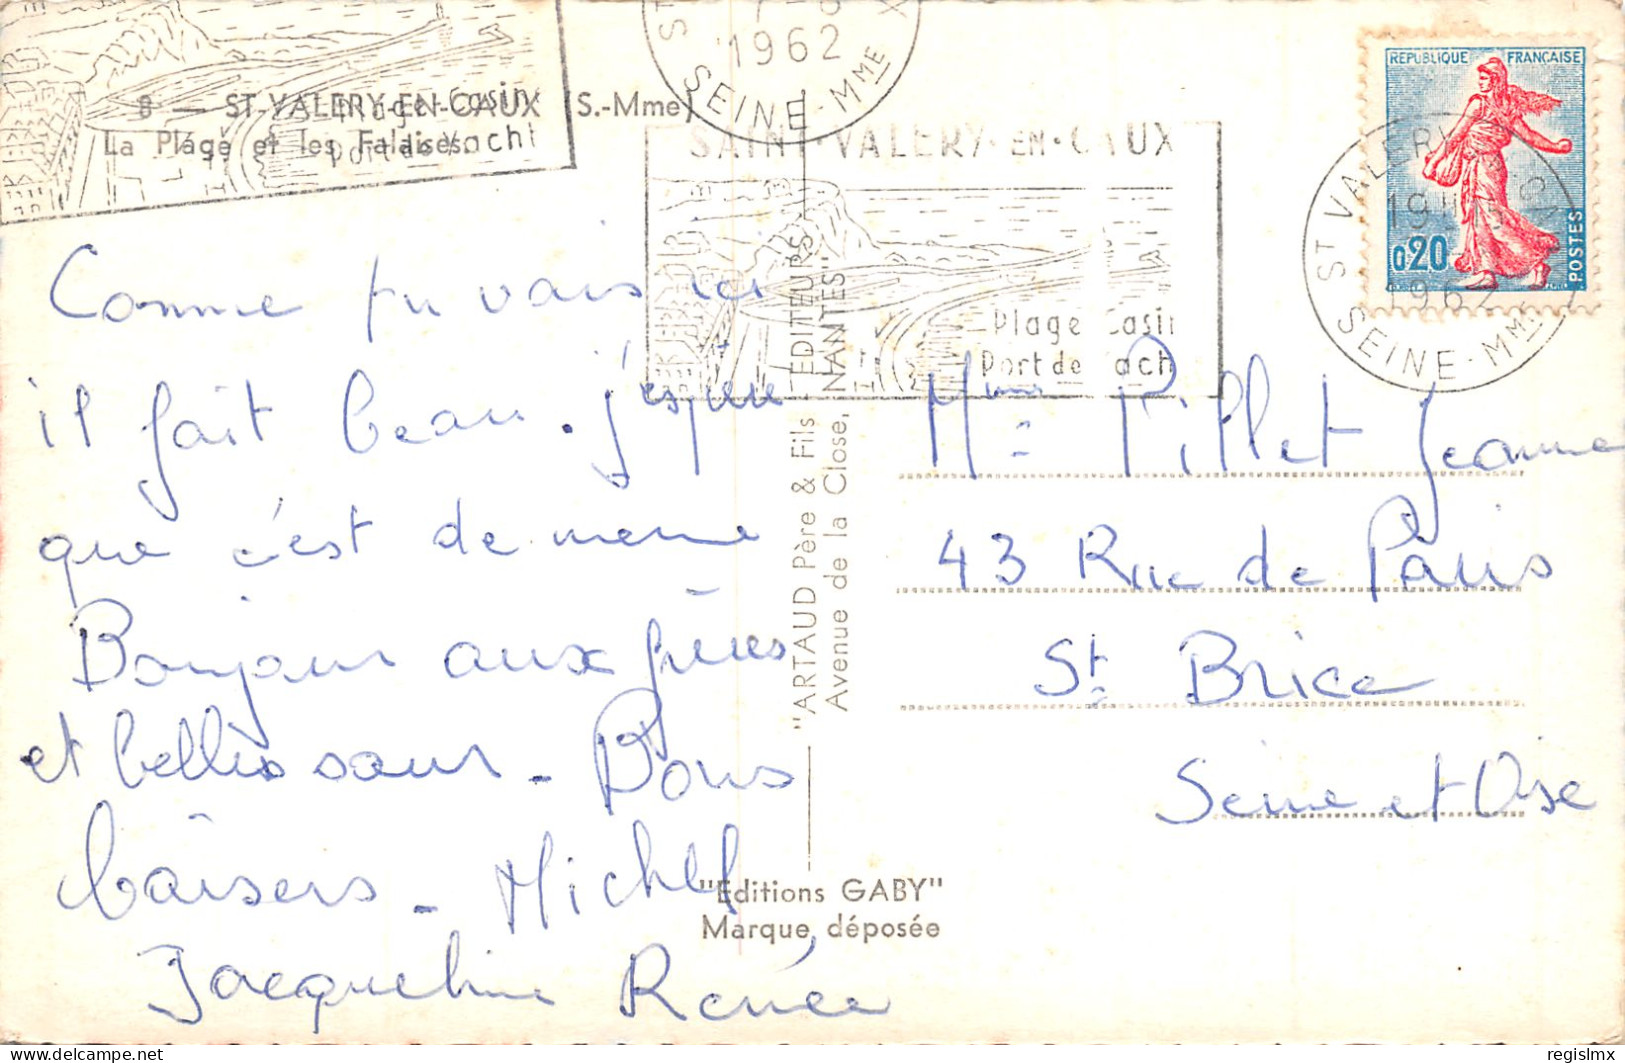 8 — ST-VALERY-EN-CAUX (S.-Mme)
La Plage et les Falaises
1962
SEINE-MME
SAINT-VALERY-EN-CAUX
Plage Casin
Port de Yacht
REPUBLIQUE FRANÇAISE
0,20
POSTES
ST VALERY
19
1962
SEINE-MME
Comme tu vois ici
il fait beau. j'espère
que c'est de meme
Bonjour aux frères
et belles sœurs - Bons
baisers - Michel
Jacqueline Renée
Mme Pillet Jeanne
43 Rue de Paris
St Brice
Seine et Oise
"ARTAUD Père & Fils - EDITEURS
Avenue de la Close, NANTES"
"Editions GABY"
Marque déposée
regislmx on www.delcampe.net
regislmx